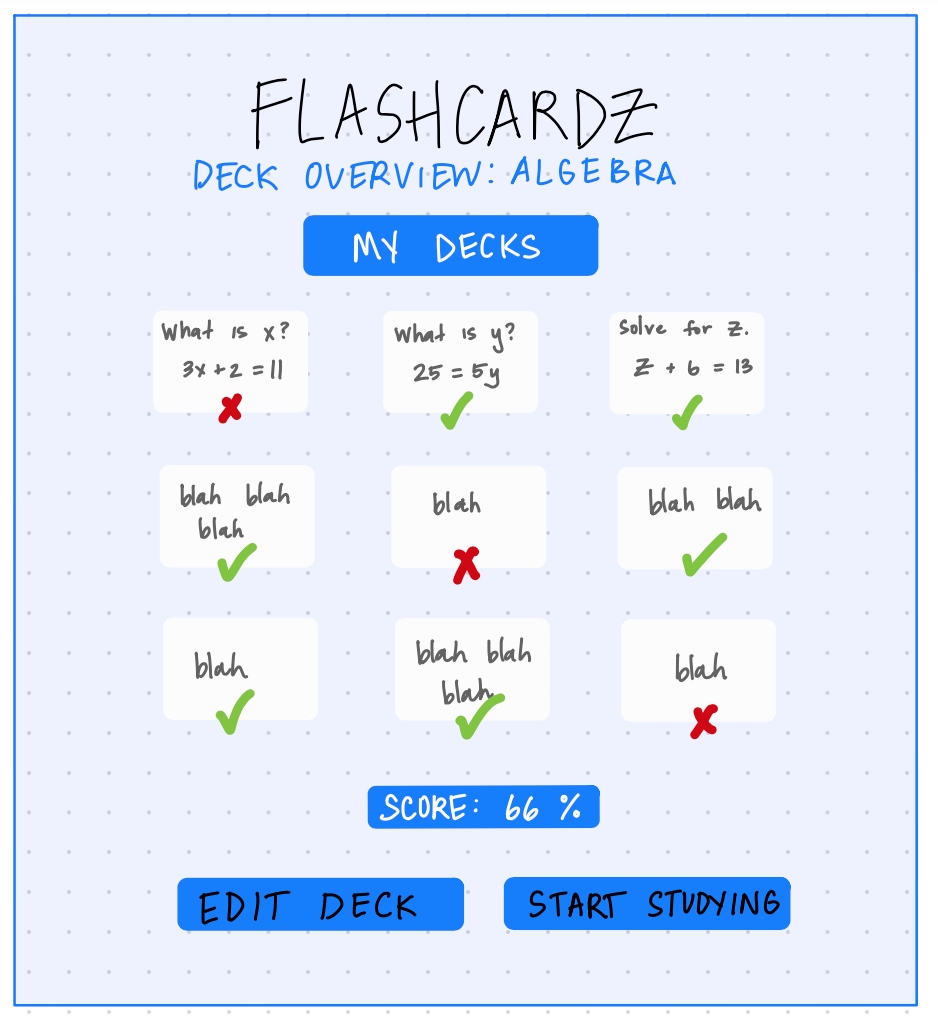 FLASHCARDZ
DECK OVERVIEW: ALGEBRA
MY DECKS
What is x?
3x + 2 = 11
What is y?
25 = 5y
Solve for z.
z + 6 = 13
blah blah
blah
blah
blah blah
blah
blah blah
blah
blah
SCORE: 66 %
EDIT DECK
START STUDYING